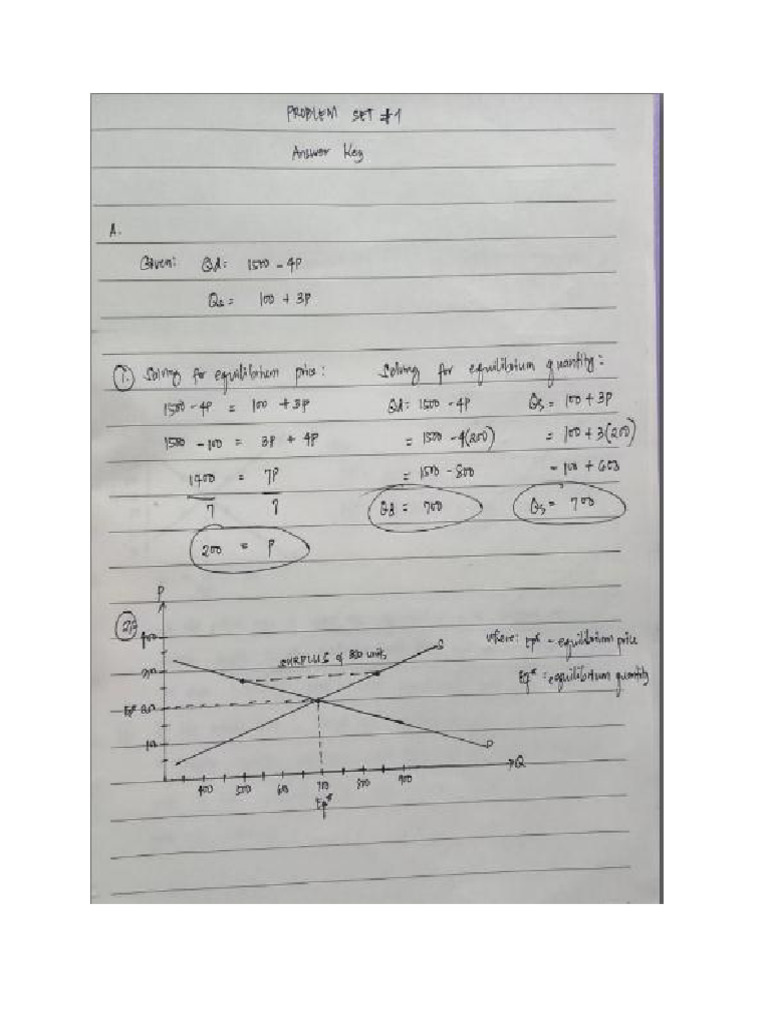 PROBLEM SET #1
Answer Key
A.
Given: Qd: 1500 - 4P
Qs = 100 + 3P
1. Solving for equilibrium price:
1500 - 4P = 100 + 3P
1500 - 100 = 3P + 4P
1400 = 7P
7 7
200 = P
Solving for equilibrium quantity:
Qd: 1500 - 4P
= 1500 - 4(200)
= 1500 - 800
Qd = 700
Qs = 100 + 3P
= 100 + 3(200)
= 100 + 600
Qs = 700
2.
P
SURPLUS of 350 units
S
D
Q
400 500 600 700 800 900
Eq*
where: Ep* - equilibrium price
Eq* = equilibrium quantity